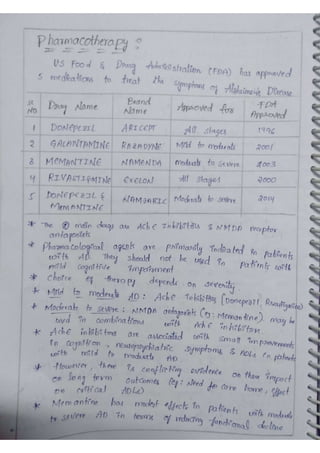 Pharmacotherapy :
US Food & Drug Administration (FDA) has approved
5 medications to treat the symptoms of Alzheimer's Disease
Sl NO Drug Name Brand Name Approved for FDA Approved
1 DONEPEZIL ARICEPT All stages 1996
2 GALANTAMINE RAZADYNE Mild to moderate 2001
3 MEMANTINE NAMENDA moderate to severe 2003
4 RIVASTIGMINE EXELON All stages 2000
5 DONEPEZIL & MEMANTINE NAMZARIC Moderate to severe 2014
* The main drugs are AchE Inhibitors & NMDA receptor
antagonists
* Pharmacological agents are primarily indicated in patients
with AD. They should not be used in patients with
mild cognitive impairment
* Choice of therapy depends on severity
* Mild to moderate AD : AchE inhibitor (Donepezil, Rivastigmine)
* Moderate to severe : NMDA antagonists (eg: Memantine) may be
used in combinations with AchE inhibitors.
* AchE inhibitors are associated with small improvements
in cognition, neuropsychiatric symptoms & ADLs in patients
with mild to moderate AD
* However, there is conflicting evidence on their impact
on long term outcomes (eg: Need for care home, effect
on critical ADLs)
* Memantine has modest effects in patients with moderate
to severe AD in terms of reducing functional decline